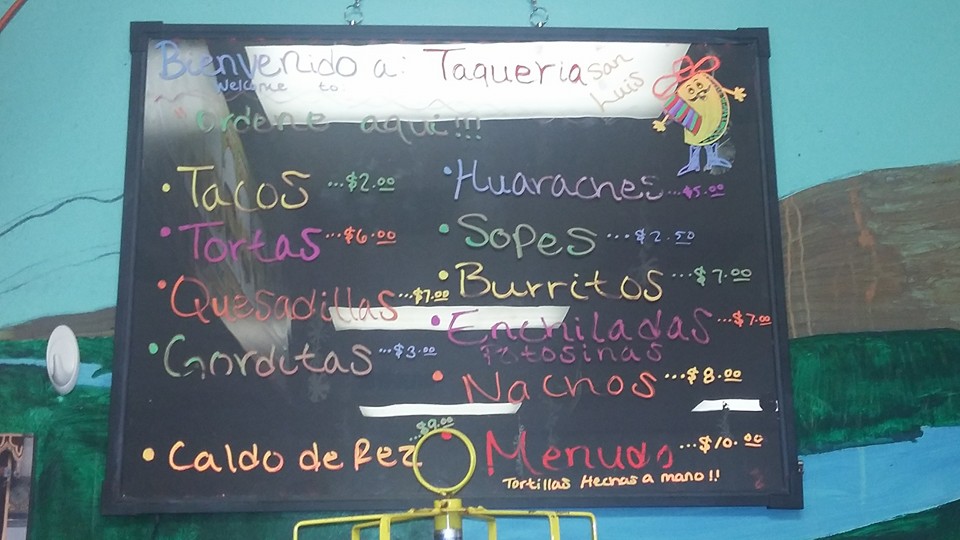 Bienvenido a: Taqueria san Luis
Welcome to
"ordene aqui!!!
• Tacos ...$2.00
• Tortas ...$6.00
• Quesadillas ...$7.00
• Gorditas ...$3.00
• Caldo de Rez ...$9.00
• Huaraches ...$5.00
• Sopes ...$2.50
• Burritos ...$7.00
• Enchiladas ...$7.00
Potosinas
• Nachos ...$8.00
• Menudo ...$10.00
Tortillas Hechas a mano!!